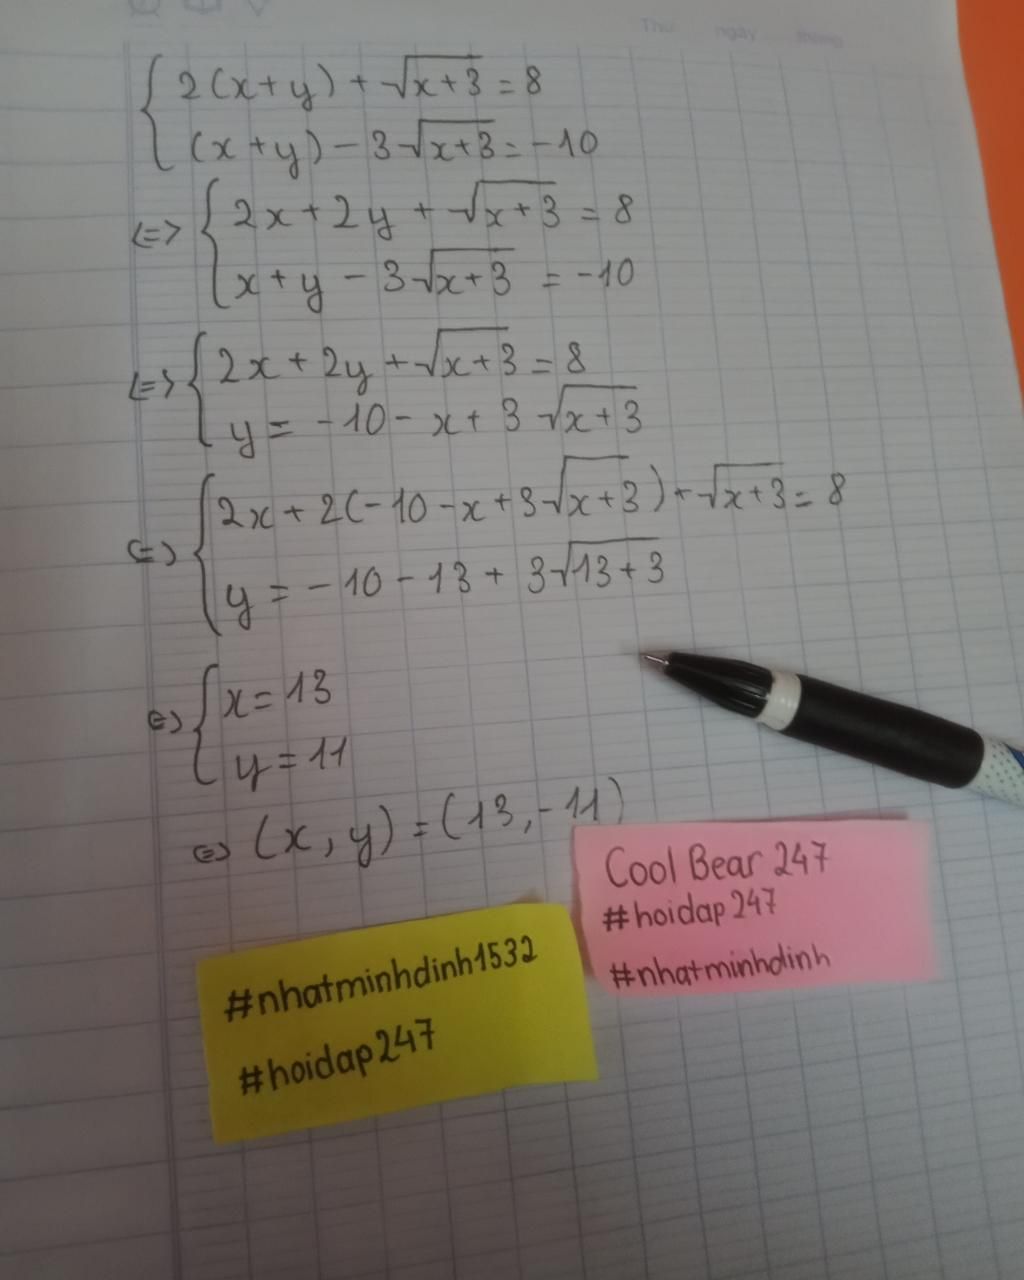 Thứ ngày tháng
{ 2(x+y) + √(x+3) = 8
(x+y) - 3√(x+3) = -10
<=> { 2x + 2y + √(x+3) = 8
x + y - 3√(x+3) = -10
<=> { 2x + 2y + √(x+3) = 8
y = -10 - x + 3√(x+3)
<=> { 2x + 2(-10 - x + 3√(x+3)) + √(x+3) = 8
y = -10 - 13 + 3√(13+3)
<=> { x = 13
y = 11
<=> (x, y) = (13, -11)
Cool Bear 247
#hoidap247
#nhatminhdinh
#nhatminhdinh1532
#hoidap247